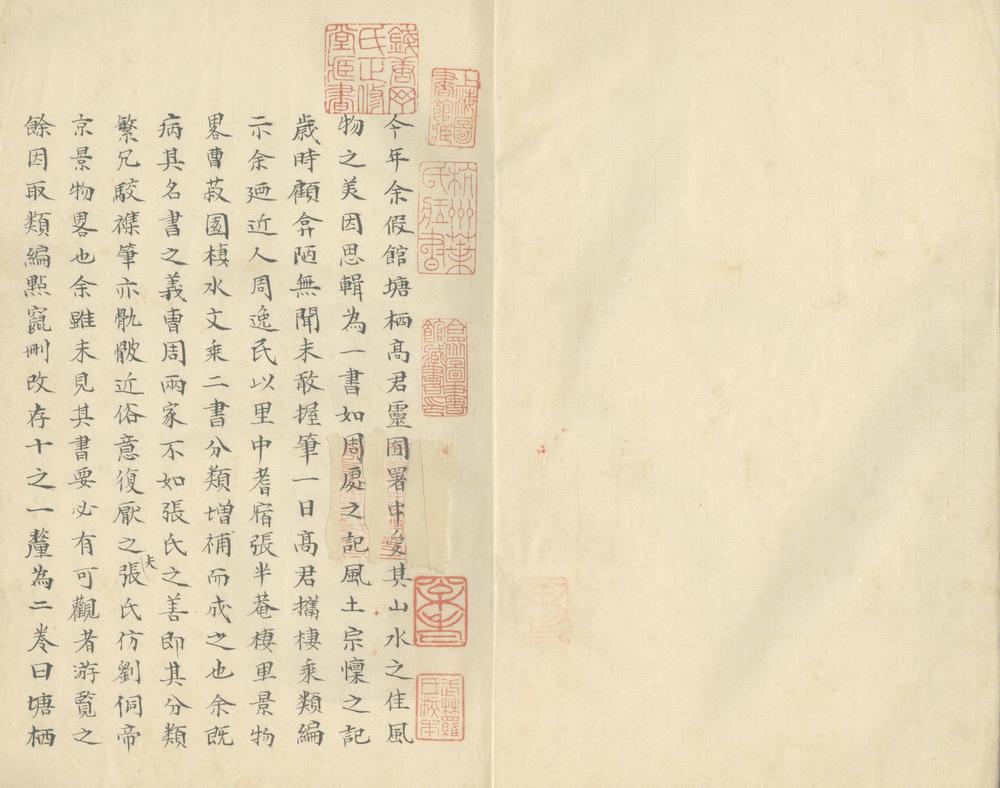 今年余假館塘栖高君靈圃署中愛其山水之佳風
物之美因思輯為一書如周處之記風土宗懍之記
歲時顧弇陋無聞未敢握筆一日高君攜棲乘類編
示余迺近人周逸民以里中耆宿張半菴棲里景物
畧曹菽園棲水文乘二書分類增補而成之也余既
病其名書之義曹周兩家不如張氏之善即其分類
繁冗駁襍筆亦骫骳近俗意復厭之夫張氏仿劉侗帝
京景物畧也余雖未見其書要必有可觀者游覽之
餘因取類編點竄刪改存十之一釐為二卷曰塘栖
錢唐丁氏正修堂藏書
上海圖書館藏
杭州葉氏藏書
武林葉